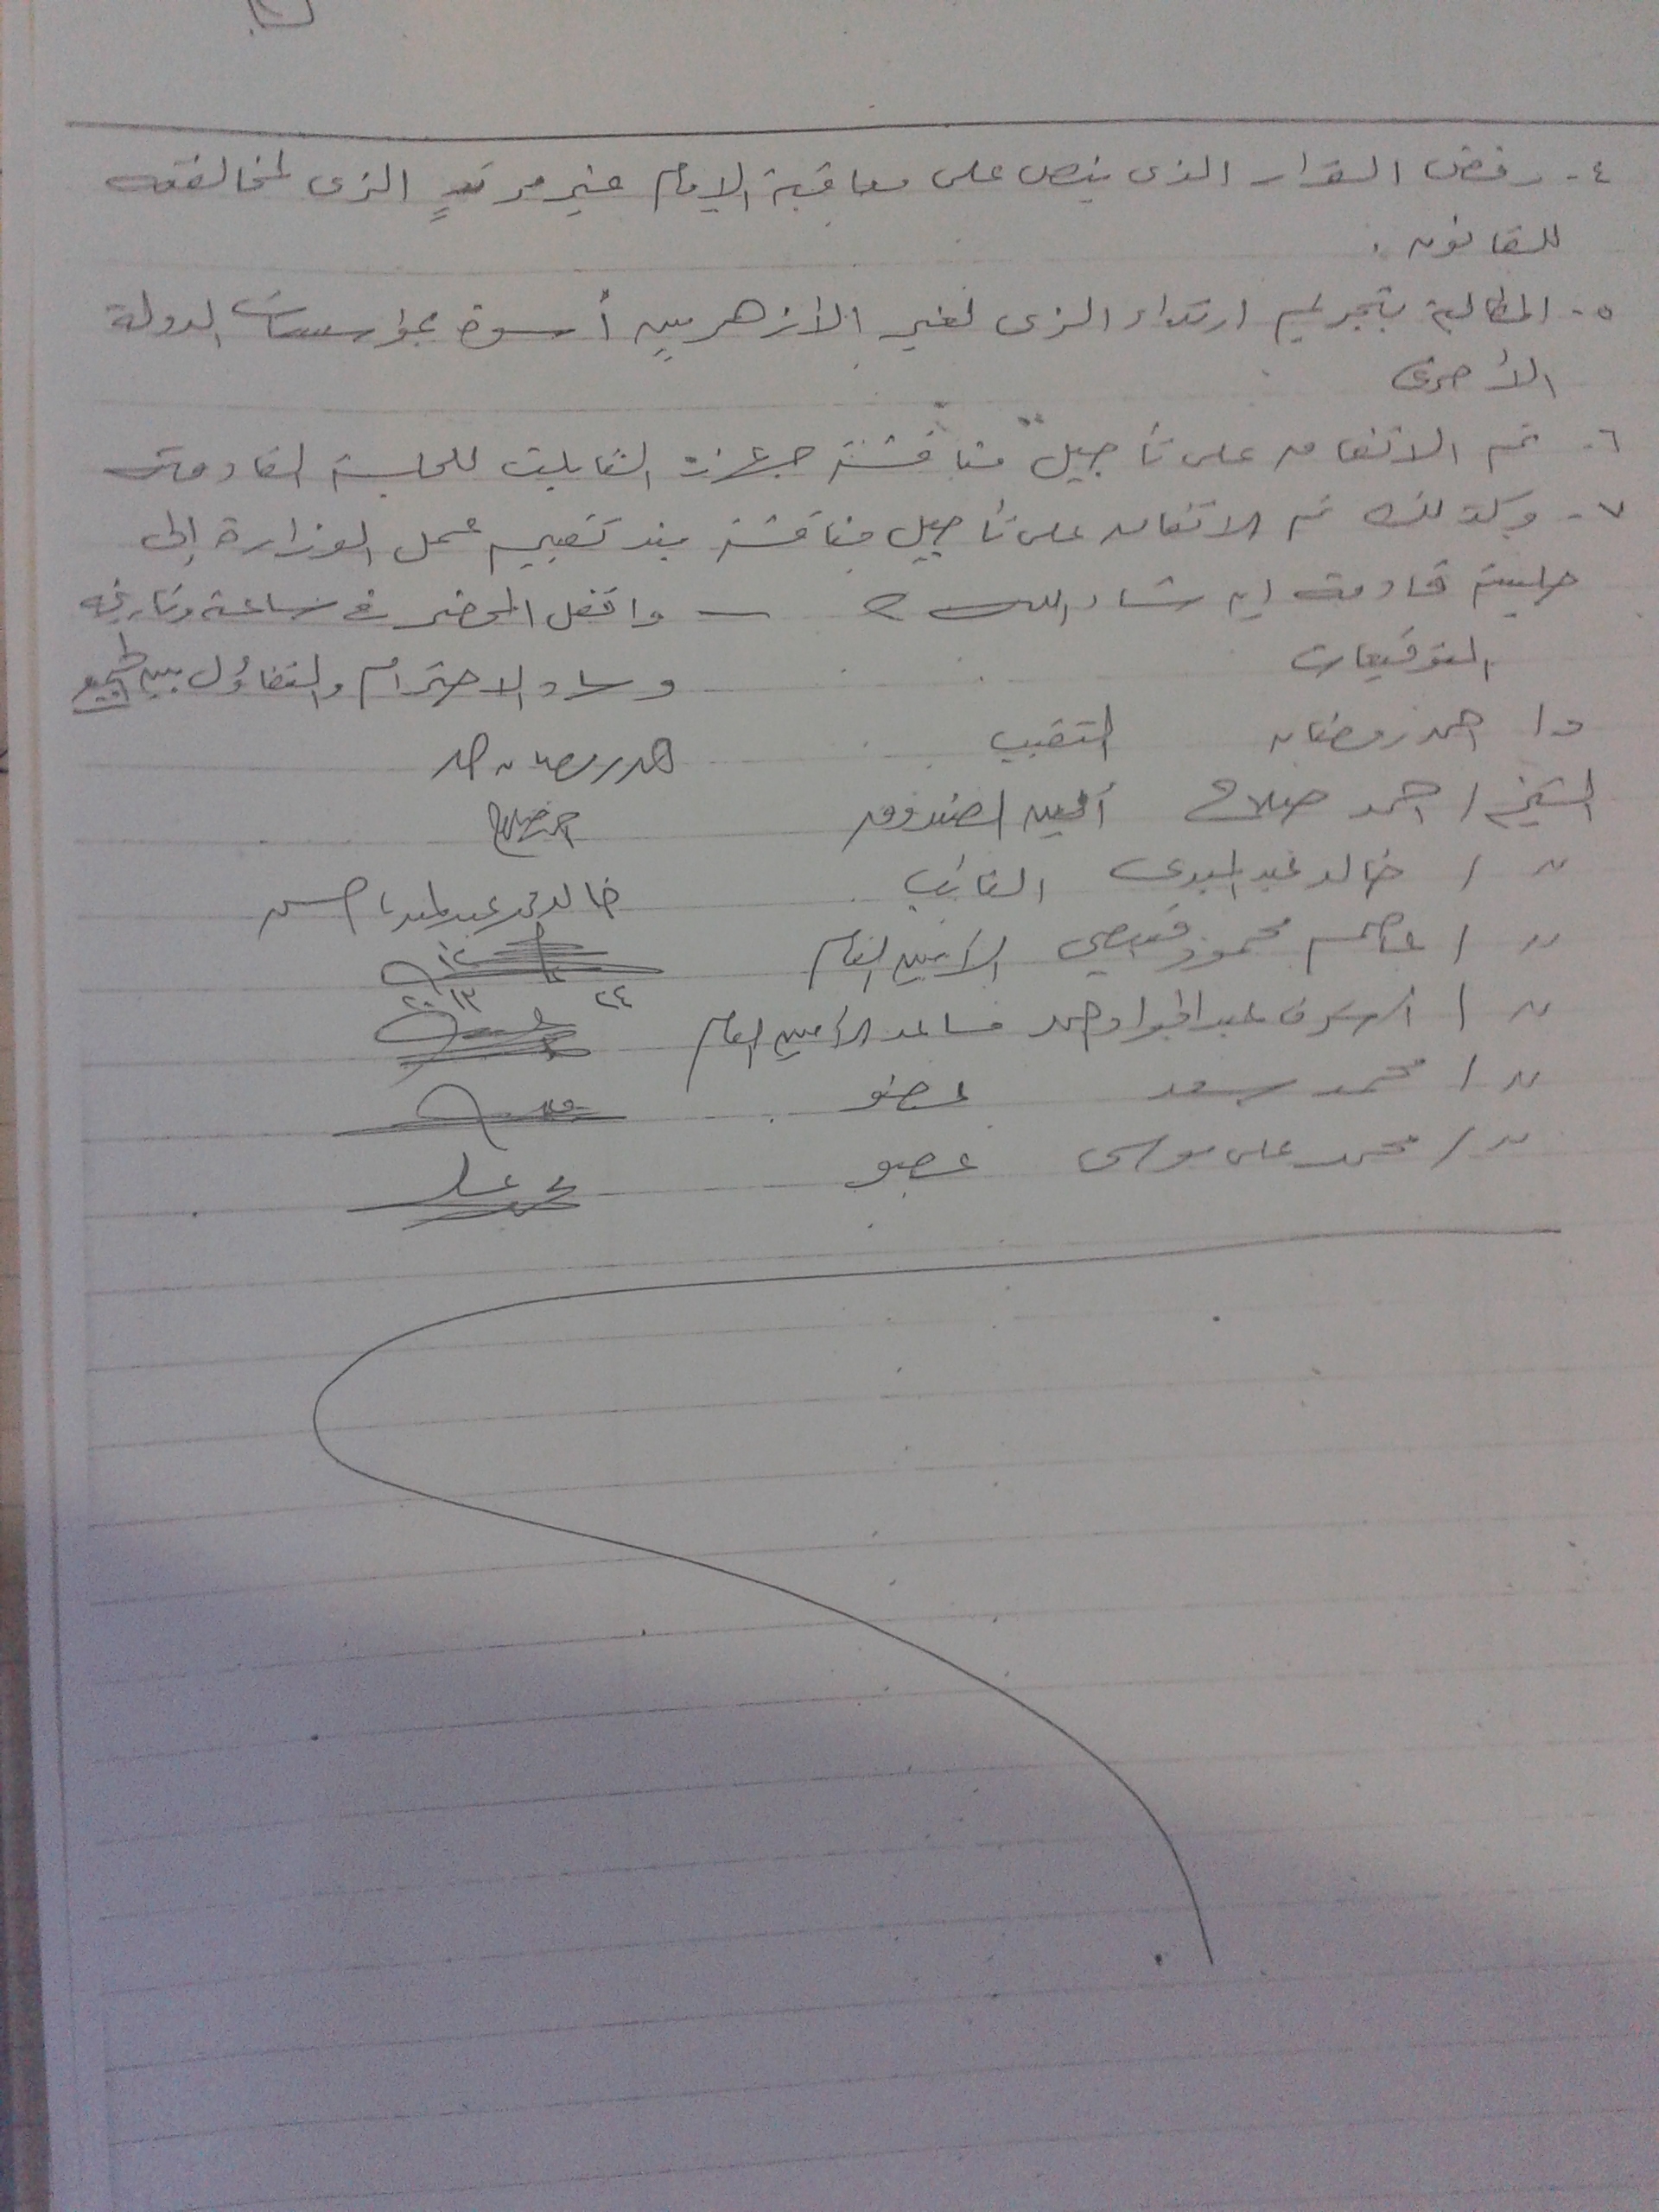 ٤- رفض القرار الذى ينص على معاقبة الإمام غير مرتدٍ الزى لمخالفته
للقانون .
٥- المطالبة بتجريم ارتداء الزى لغير الأزهريين أسوة بمؤسسات الدولة
الأخرى
٦- تم الاتفاق على تأجيل مناقشة جهاز التابلت للجلسة القادمة
٧- وكذلك تم الاتفاق على تأجيل مناقشة بند تقييم عمل الوزارة إلى
جلسة قادمة إن شاء الله — واقفل المحضر فى ساعة وتاريخه
التوقيعات وساد الاحترام والتفاؤل بين الجميع
د/ احمد رمضان النقيب احمد رمضان احمد
الشيخ / احمد صلاح أمين الصندوق احمد صلاح
" / خالد عبد المبدى النائب خالد محمد عبد المبدى حسن
" / عاصم محمود قبيصي الأمين العام
٢٤ ١٢ ٢٠١٣
" / اشرف عبد الجواد محمد مساعد الأمين العام
" / محمد سعد عضو
" / محمد على موسى عضو محمد على